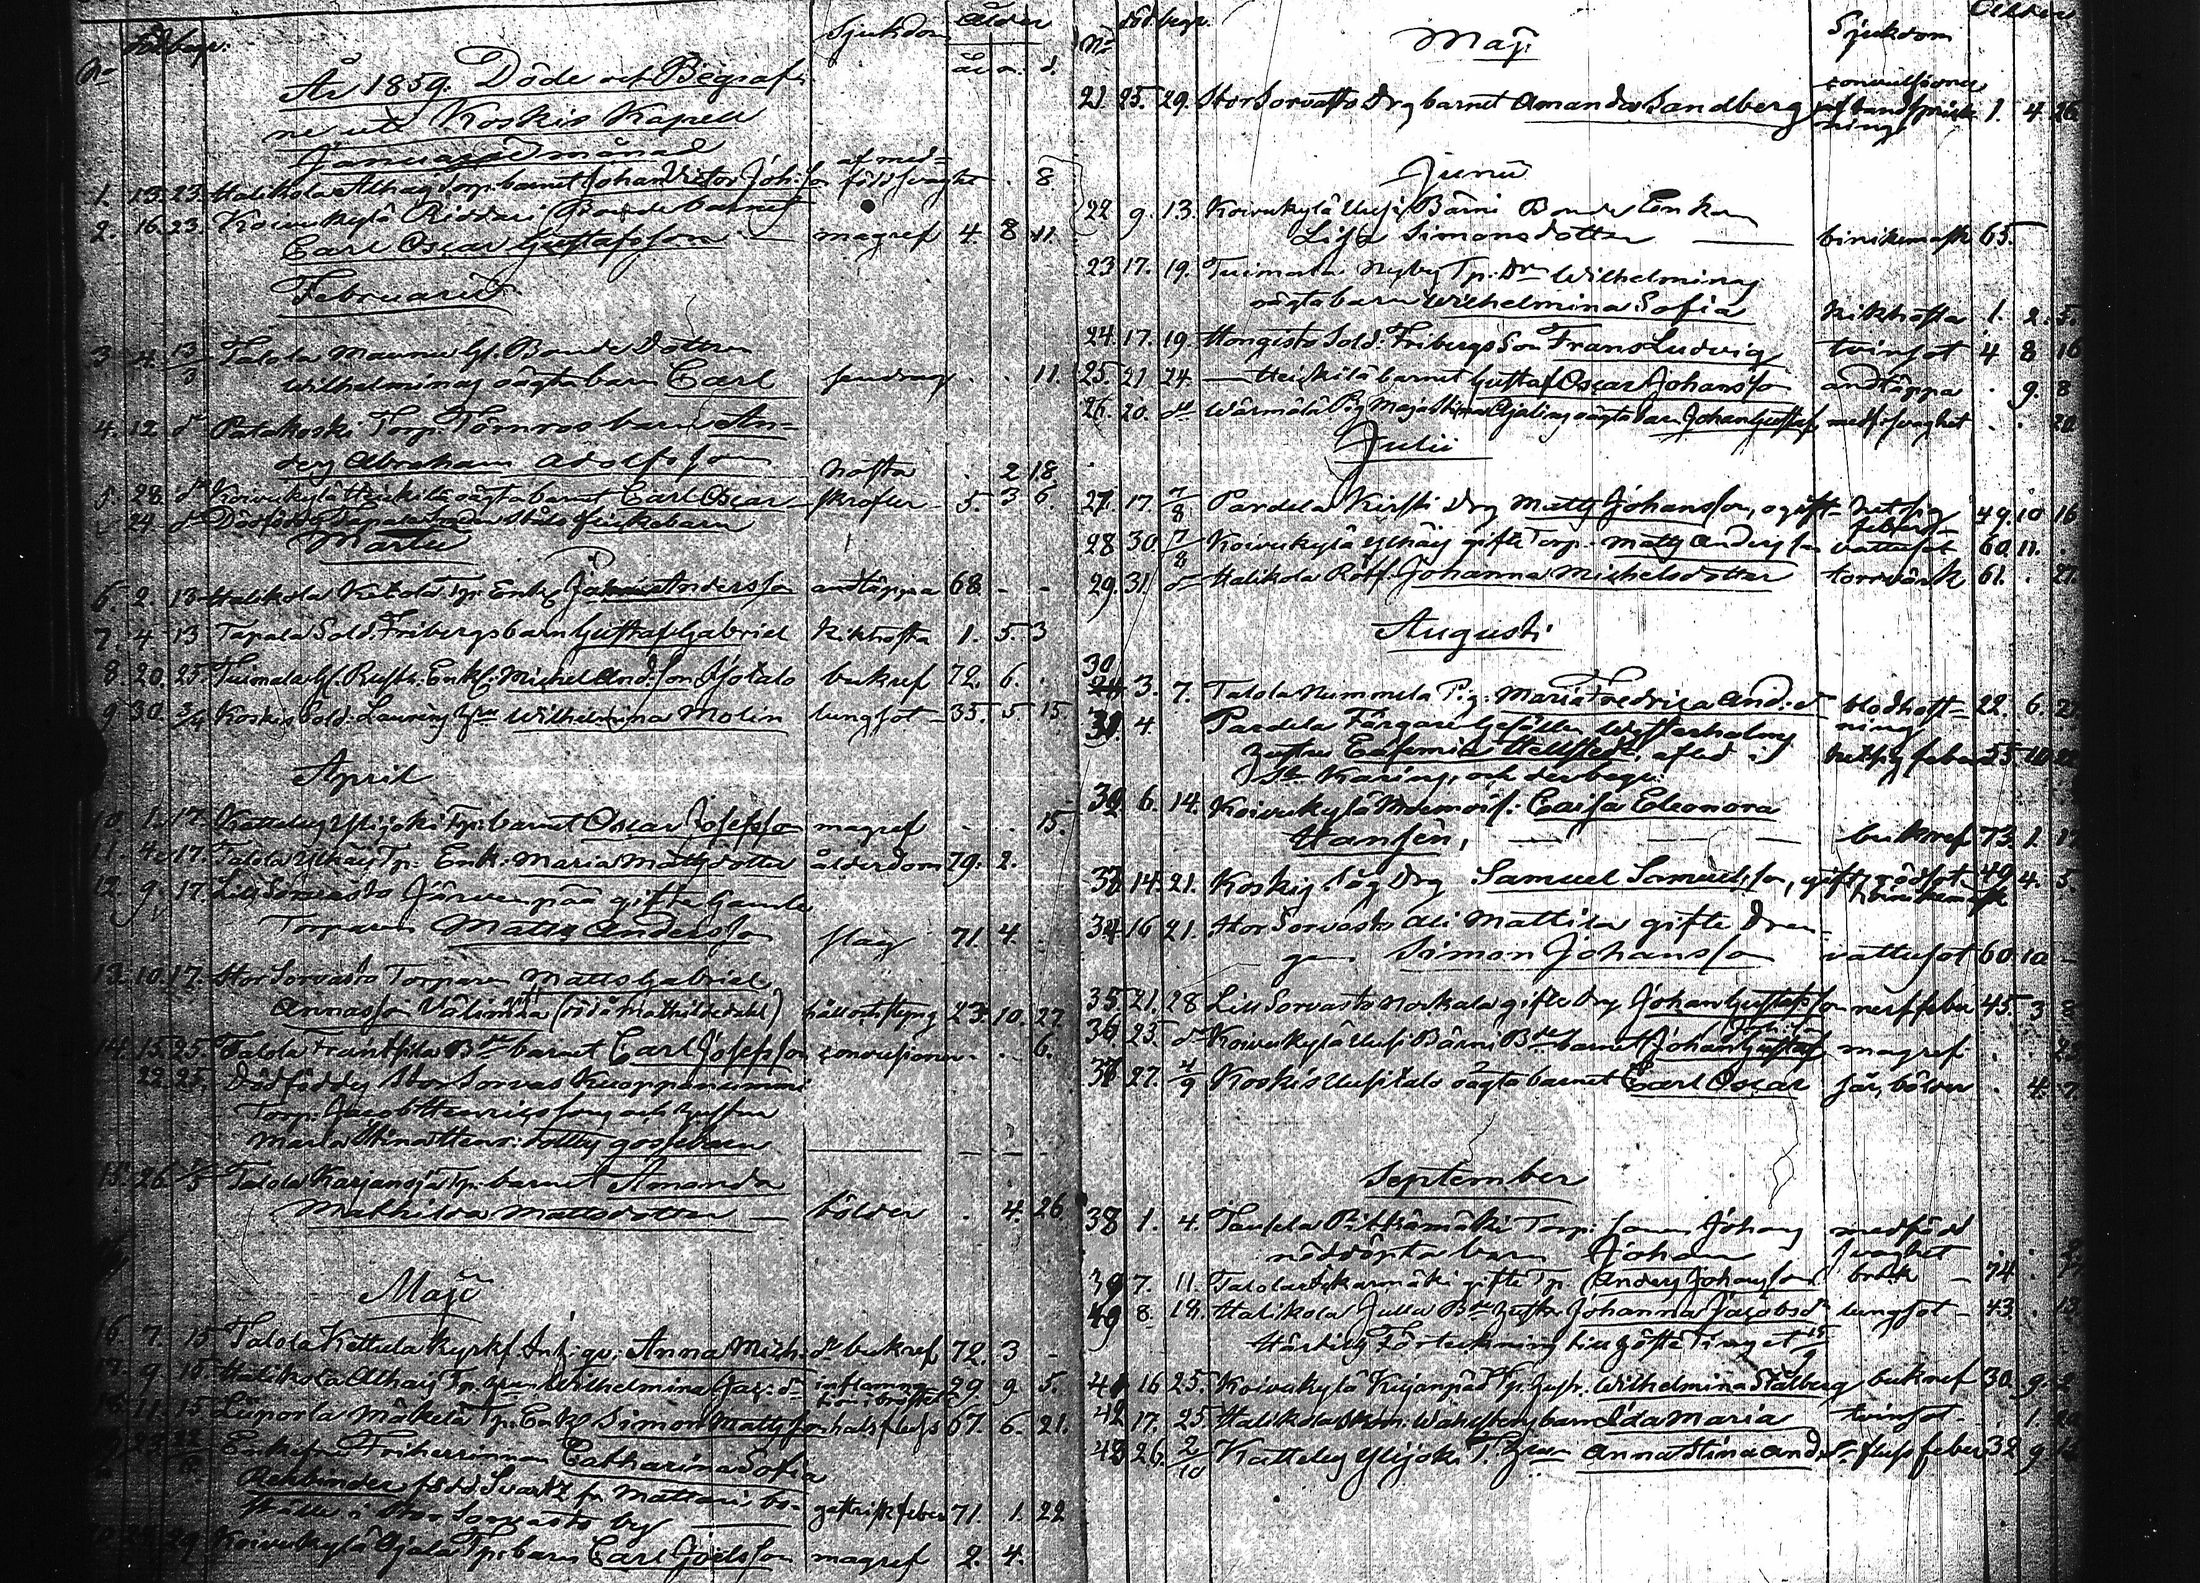 Död begr. Sjukdom Ålder
No år m. d.
År 1859. Döde och Begraf-
ne uti Koskis Kapell
Januarii månad
1. 13. 23. Halikola Alhaij Torp. barnet Johan Victor Joh:son af med-
född svaghet . 8
2. 16. 23. Koivukylä Riddari Bonde barnet
Carl Oscar Gustafsson — magref 4. 8 11.
Februarii
3 4. 13/3 Talola Maunu Gl. Bonde Dottren
Wilhelminas oägta barn Carl sendrag . . 11.
4. 12 do Patakoski Torp. Törnros barn An-
ders Abraham Adolfsson hosta . 2 18
5. 28. do Koivukylä Heikilä oägta barnet Carl Oscar skrofler 5. 3 6.
29 do Dödfödt Tapala flickebarn
Martii
6. 2. 13. Halikola Ketola Tp. Enkl. Andersson andtäppa 68. - -
7. 4. 13 Tapala Sold. Fribergs barn Gustaf Gabriel kikhosta 1. 5. 3
8 20. 25. Tuimala Gl. Rusth. Enkl. Michel And:son Isotalo bukref 72. 6. .
9 30. 3/4 Koskis Sold. Laurens hu Wilhelmina Molin lungsot 35. 5 15.
April
10. 1. 17. Kattelus Ylijoki Tp. barnet Oscar Josefsson magref - . 15.
11. 4. 17. Talola Ylhäis Tp. Enk. Maria Mattsdotter ålderdom 79. 2.
12. 9. 17. Lill Sorvasto Järvenpää gifte Gamle
Torparen Matts Andersson slag 71. 4. .
13. 10. 17. Stor Sorvasto Torparen Matts Gabriel
Annasson Välimaa (död å Mathildedahl) håll och styng 23. 10. 27.
14. 15. 25. Talola Frantsila Bde barnet Carl Josefsson convulsioner - . 6.
22. 25. Dödfödde Stor Sorvas Kuoppanummi
Torp. Jacob Henricssons och hustru
Maria Stina Henr: dotters gossebarn — - - -
15. 26. 3/5 Talola Karjanoja Tp. barnet Amanda
Mathilda Mattsdotter — bölder . 4. 26.
Maji
16. 7. 15 Talola Kettula Kyrkf. Inh. qv. Anna Mich: dr bukref 72. 3 -
17. 9. 15. Halikola Alhais Tp. hun Wilhelmina Jac: dr inflamma-
tion i bröstet 29 9 5.
18. 11. 15. Liiporla Mäkelä Tp. Enkl. Simon Mattsson halsfluss 67. 6. 21.
Enkefru Friherrinnan Catharina Sofia
Rehbinder född Svartz fr. Mattari bo-
ställe i Stor Sorvasto by — gastrisk feber 71. 1. 22
29 Koivukylä Ojala Tp. barn Carl Joelsson magref 2. 4.
No död begr. Maji Sjukdom Ålder
21 25. 29. Stor Sorvasto Drg barnet Amanda Sandberg convulsioner
af tandsprick-
ning 1. 4 26
Junii
22 9. 13. Koivukylä Uusi Bärni Bonde Enkan
Lisa Simonsdotter — binikemask 65.
23 17. 19. Tuimala Nyby Tp. Dr Wilhelminas
oägta barn Wilhelmina Sofia kikhosta 1. 2. 5.
24. 17. 19. Hongisto Sold. Fribergs Son Frans Ludvig tvinsot 4 8 16
25. 21 24. — Heikkilä barnet Gustaf Oscar Johansson andtäppa . 9. 8
26. 20. do Wärmälä Pig. Maja Stina oägta barn Johan Gustaf medf. svaghet . . 20
Julii
27. 17. 7/8 Pardela Kirsti Drg Matts Johansson, ogift hetsig
feber 49. 10 16
28 30. 7/8 Koivukylä Ylhäis gifte Torp. Matts Andersson vattusot 60. 11. .
29. 31. do Halikola Rötf. Johanna Michelsdotter torrvärk 61. . 27.
Augusti
30 3. 7. Talola Nummela Pig. Maria Fredrica And: dr blodhost-
ning 22. 6. 27
31. 4 Pardela Färgare Gesällen Westerholms
hustru Eufemia Hellstedt, afled i hetsig feber 55 10
St. Karins, och der begr.
32 6. 14. Koivukylä Mamsell: Caisa Eleonora
Hansén, — — — bukref 73. 1. 17
33 14. 21. Koskis såg Drg Samuel Samuelsson, gift, rödsot 49 4. 5.
binikemask
34 16 21. Stor Sorvasto Ali Mattila gifte Dren-
gen Simon Johansson vattusot 60 10 -
35 21. 28 Lill Sorvasto Norkala gifte Drg Johan Gustafsson nerffeber 45. 3 8
36 23. do Koivukylä Uusi Bärni Bde barnet Johan Gustaf Joh: magref . . 23
37 27. 4/9 Koskis Uusitalo oägta barnet Carl Oscar sår, bölder . 4.
September
38 1. 4. Taulela Pitkämäki Torp. sonen Johans medfödd
nöddöpta barn Johan svaghet
39 7. 11. Talola Iskarmäki gifte Tp. Anders Johansson bråk — 74 .
40 8. 18. Halikola Julla Bde hustr. Johanna Jacobsdr lungsot — 43 . 13
Härtill Förteckning till Höste Tinget 15/9
41 16 25. Koivukylä Kujanpää Tp. hustr. Wilhelmina Stålberg bukref 30. 9.
42 17. 25 Halikola barn Ida Maria tvinsot - . 1.
43 26. 2/10 Kattelus Ylijoki T. hun Anna Stina And: dr fluss feber 32 9